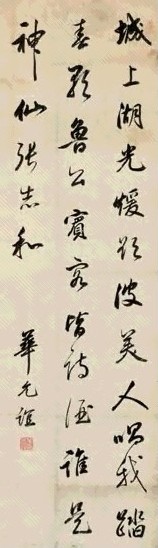 城上湖光煖欲波美人唱我踏
春歌魯公賓客皆詩酒誰是
神仙張志和
華允誼